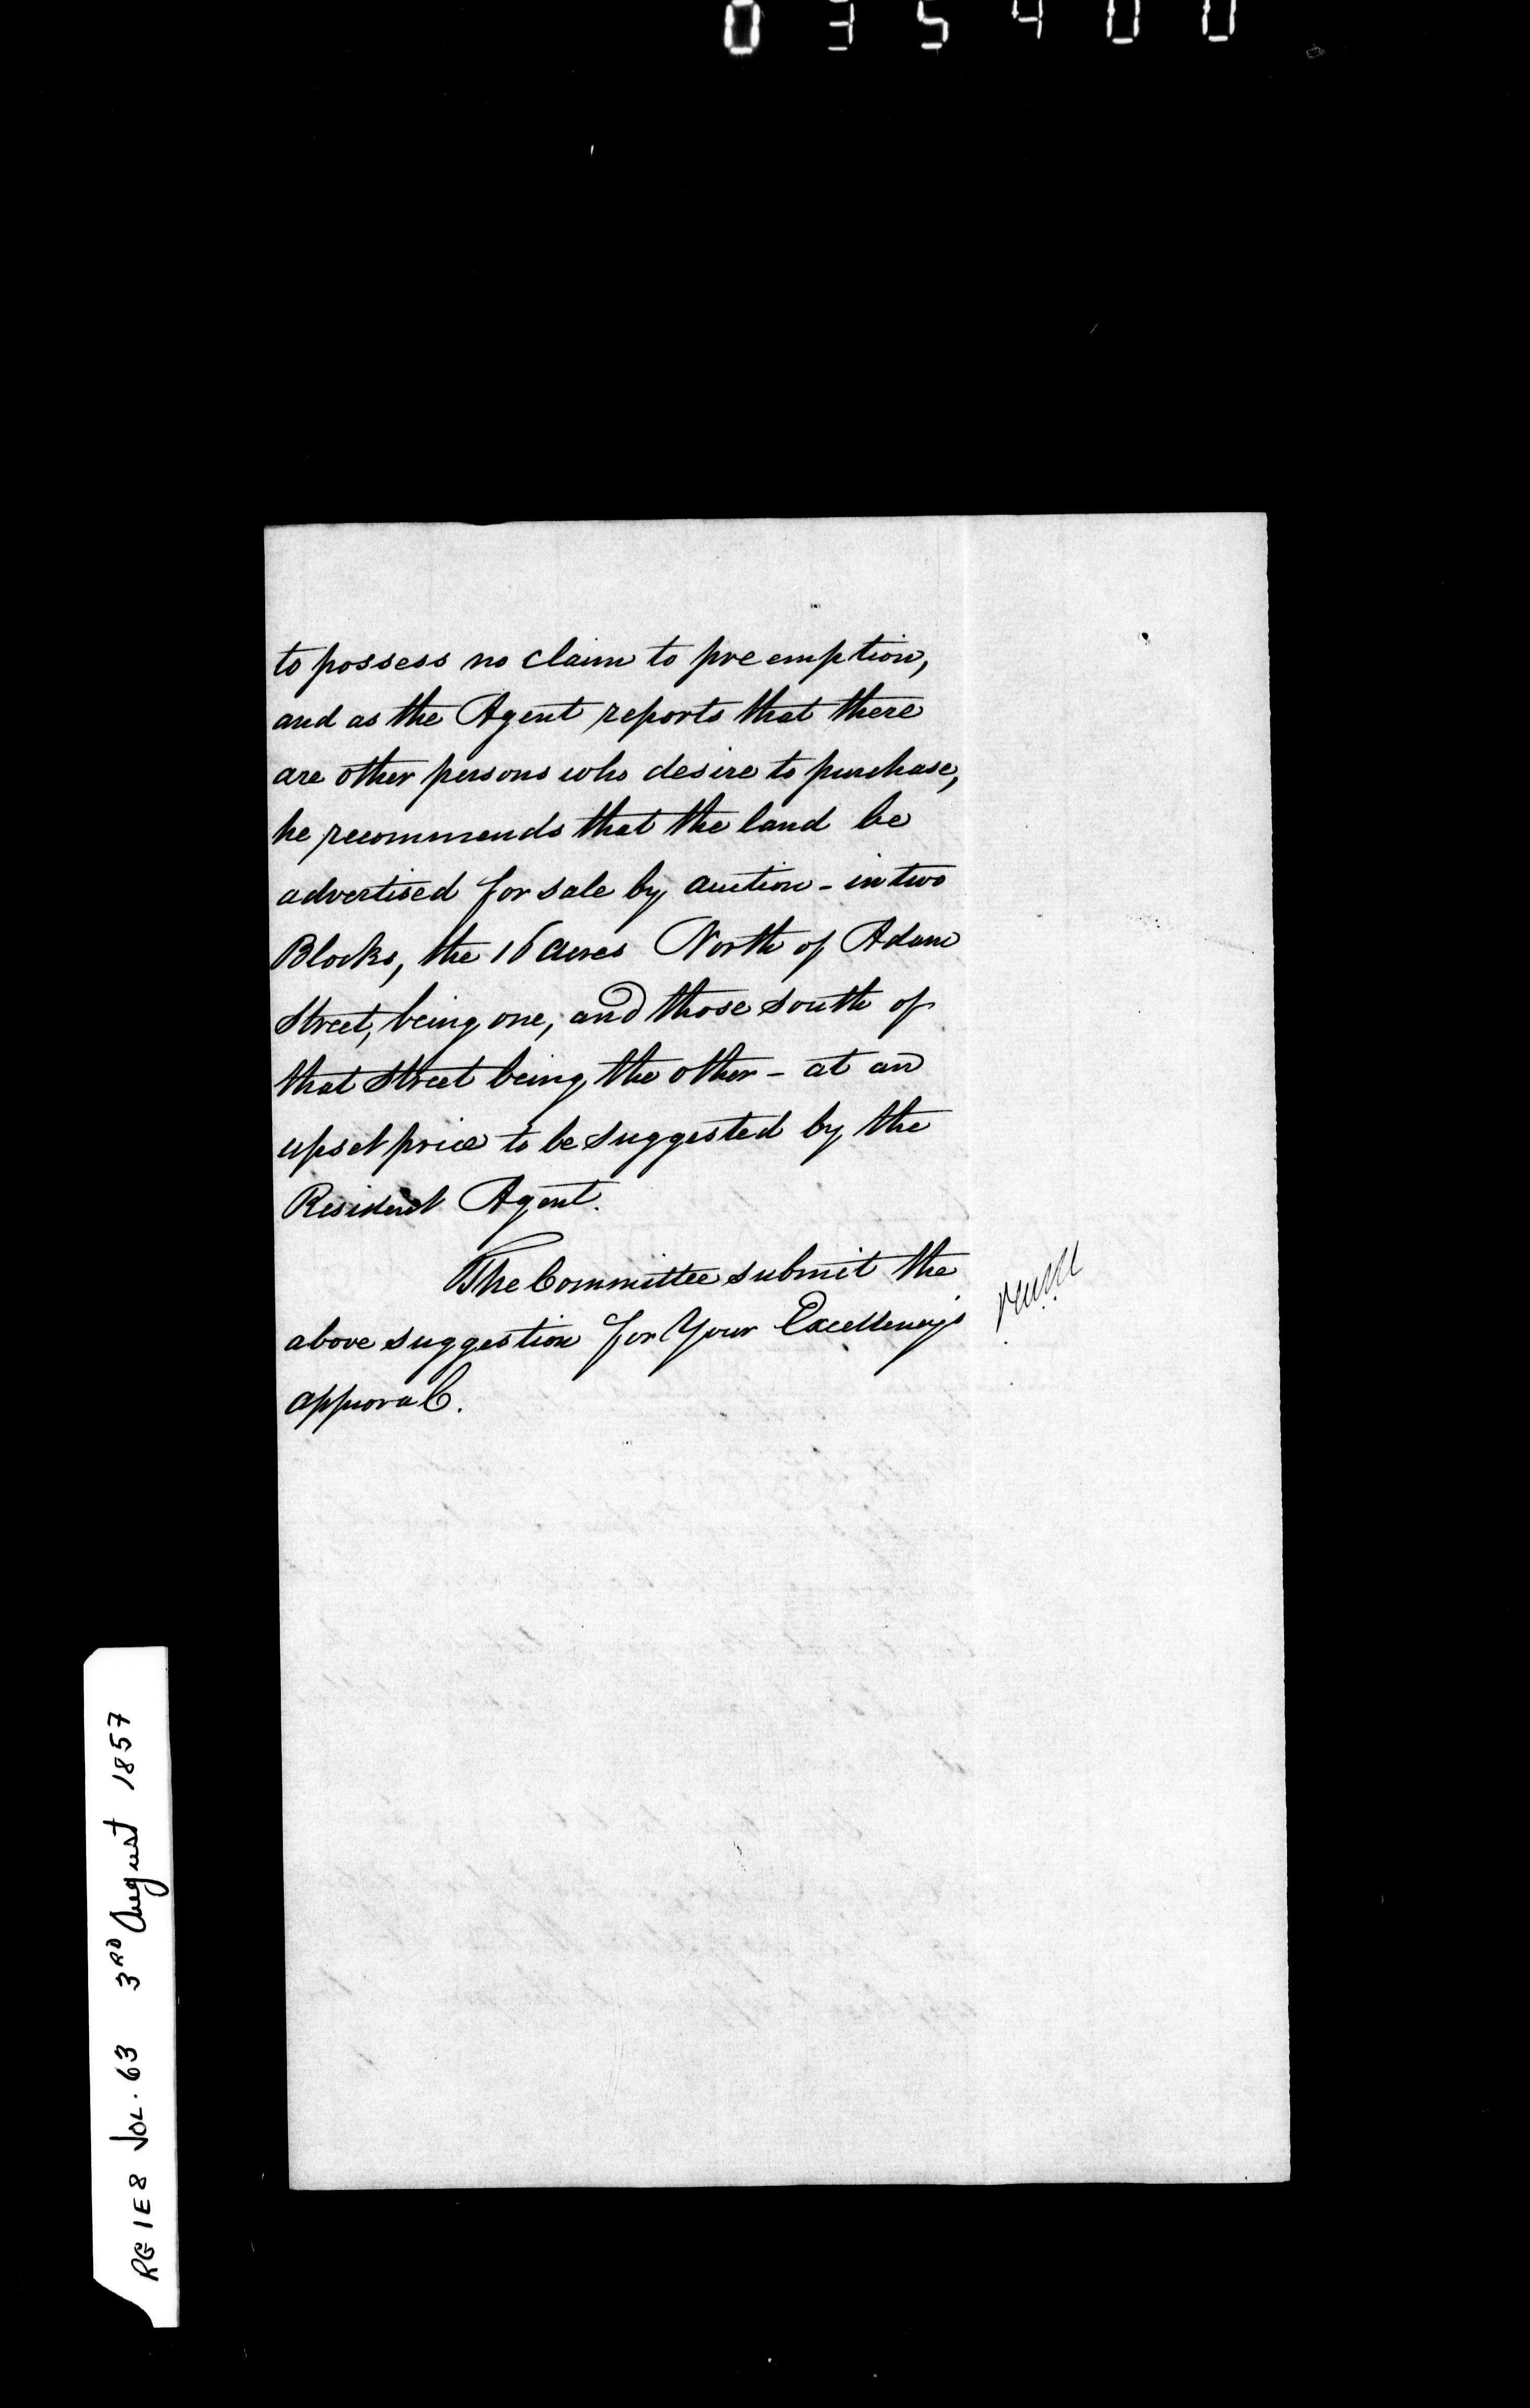 035400
to possess no claim to pre emption,
and as the Agent reports that there
are other persons who desire to purchase,
he recommends that the land be
advertised for sale by auction - in two
Blocks, the 16 acres North of Adam
Street, being one, and those south of
that street being the other - at an
upset price to be suggested by the
Resident Agent.
The Committee submit the
above suggestion for Your Excellency's
approval.
RG 1 E8 VOL. 63 3RD August 1857